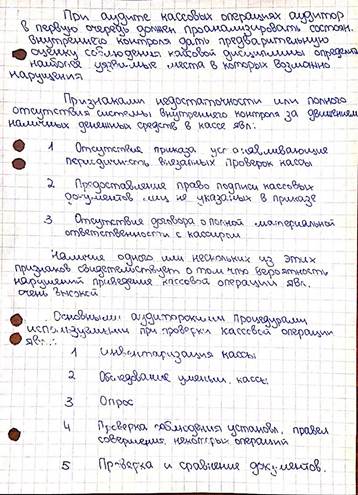 При аудите кассовых операциях аудитор
в первую очередь должен проанализировать состоян.
внутреннего контроля дать предварительную
оценку соблюдения кассовой дисциплины определить
наиболее уязвимые места в которых возможно
нарушения
Признаками недостаточности или полного
отсутствия системы внутреннего контроля за движением
наличных денежных средств в кассе явл:
1 Отсутствие приказа устанавливающие
периодичность внезапных проверок кассы
2 Предоставление право подписи кассовых
документов лиц не указаных в приказе
3 Отсутствие договора о полной материальной
ответственности с кассиром
Наличие одного или нескольких из этих
признаков свидетельствует о том что вероятность
нарушений приведение кассовой операции явл.
очень высокой
Основными аудиторскими процедурами
используемыми при проверки кассовой операции
явл.:
1 Инвентаризация кассы
2 Обследование кассы
3 Опрос
4 Проверка соблюдения установл. правел
совершения некоторых операций
5 Проверка и сравнение документов.